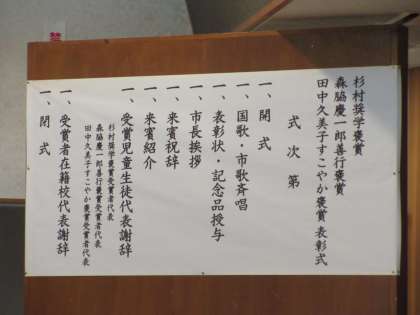 杉村奨学褒賞
森脇慶一郎善行褒賞
田中久美子すこやか褒賞表彰式
式次第
一、開式
一、国歌・市歌斉唱
一、表彰状・記念品授与
一、市長挨拶
一、来賓祝辞
一、来賓紹介
一、受賞児童生徒代表謝辞
杉村奨学褒賞受賞者代表
森脇慶一郎善行褒賞受賞者代表
田中久美子すこやか褒賞受賞者代表
一、受賞者在籍校代表謝辞
一、閉式